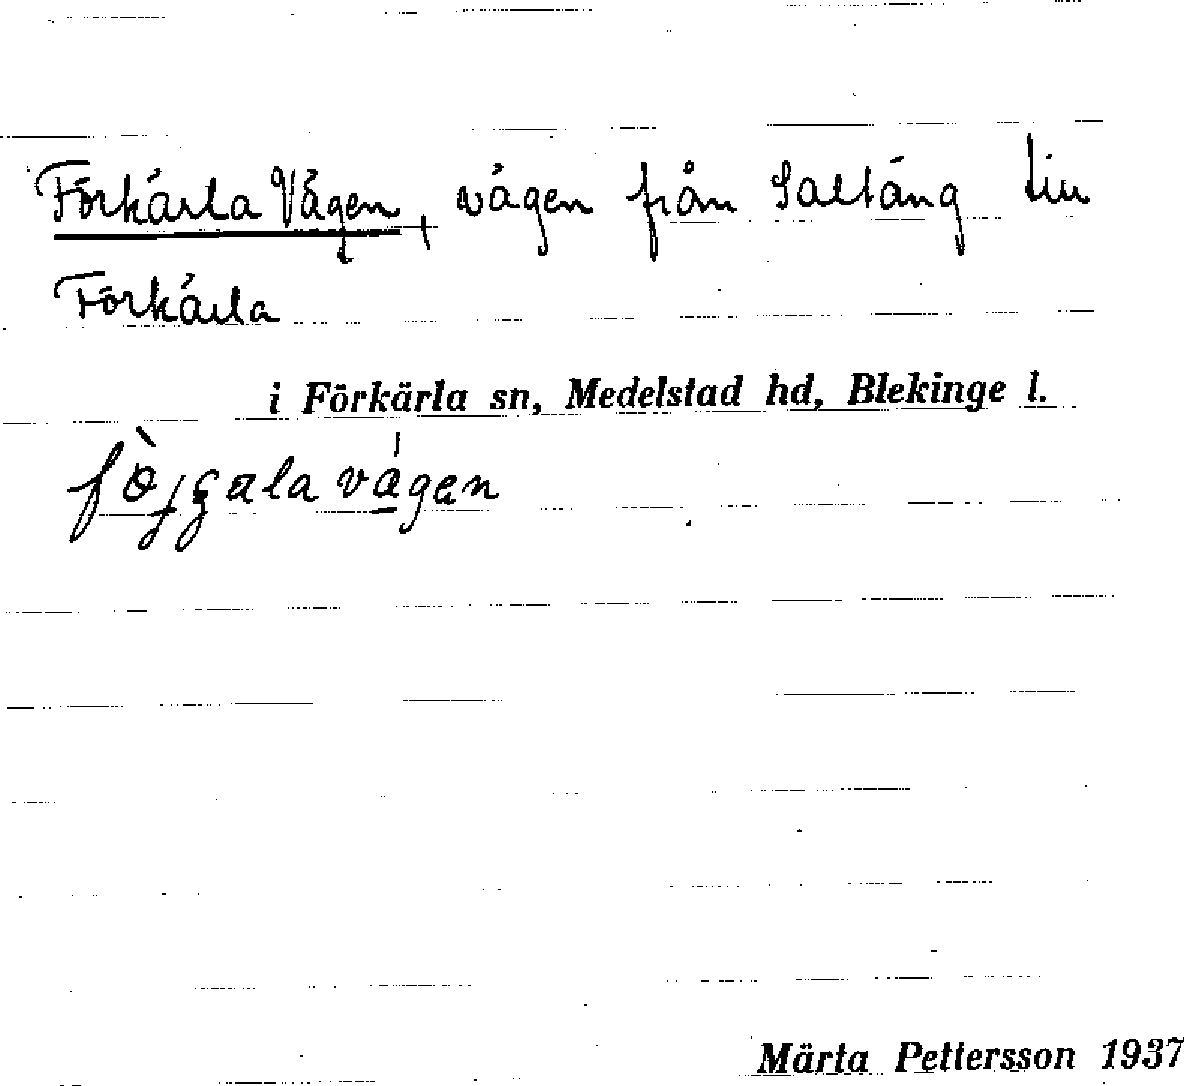 Förkärla Vägen, vägen från Saltäng till
Förkärla
i Förkärla sn, Medelstad hd, Blekinge l.
Märta Pettersson 1937